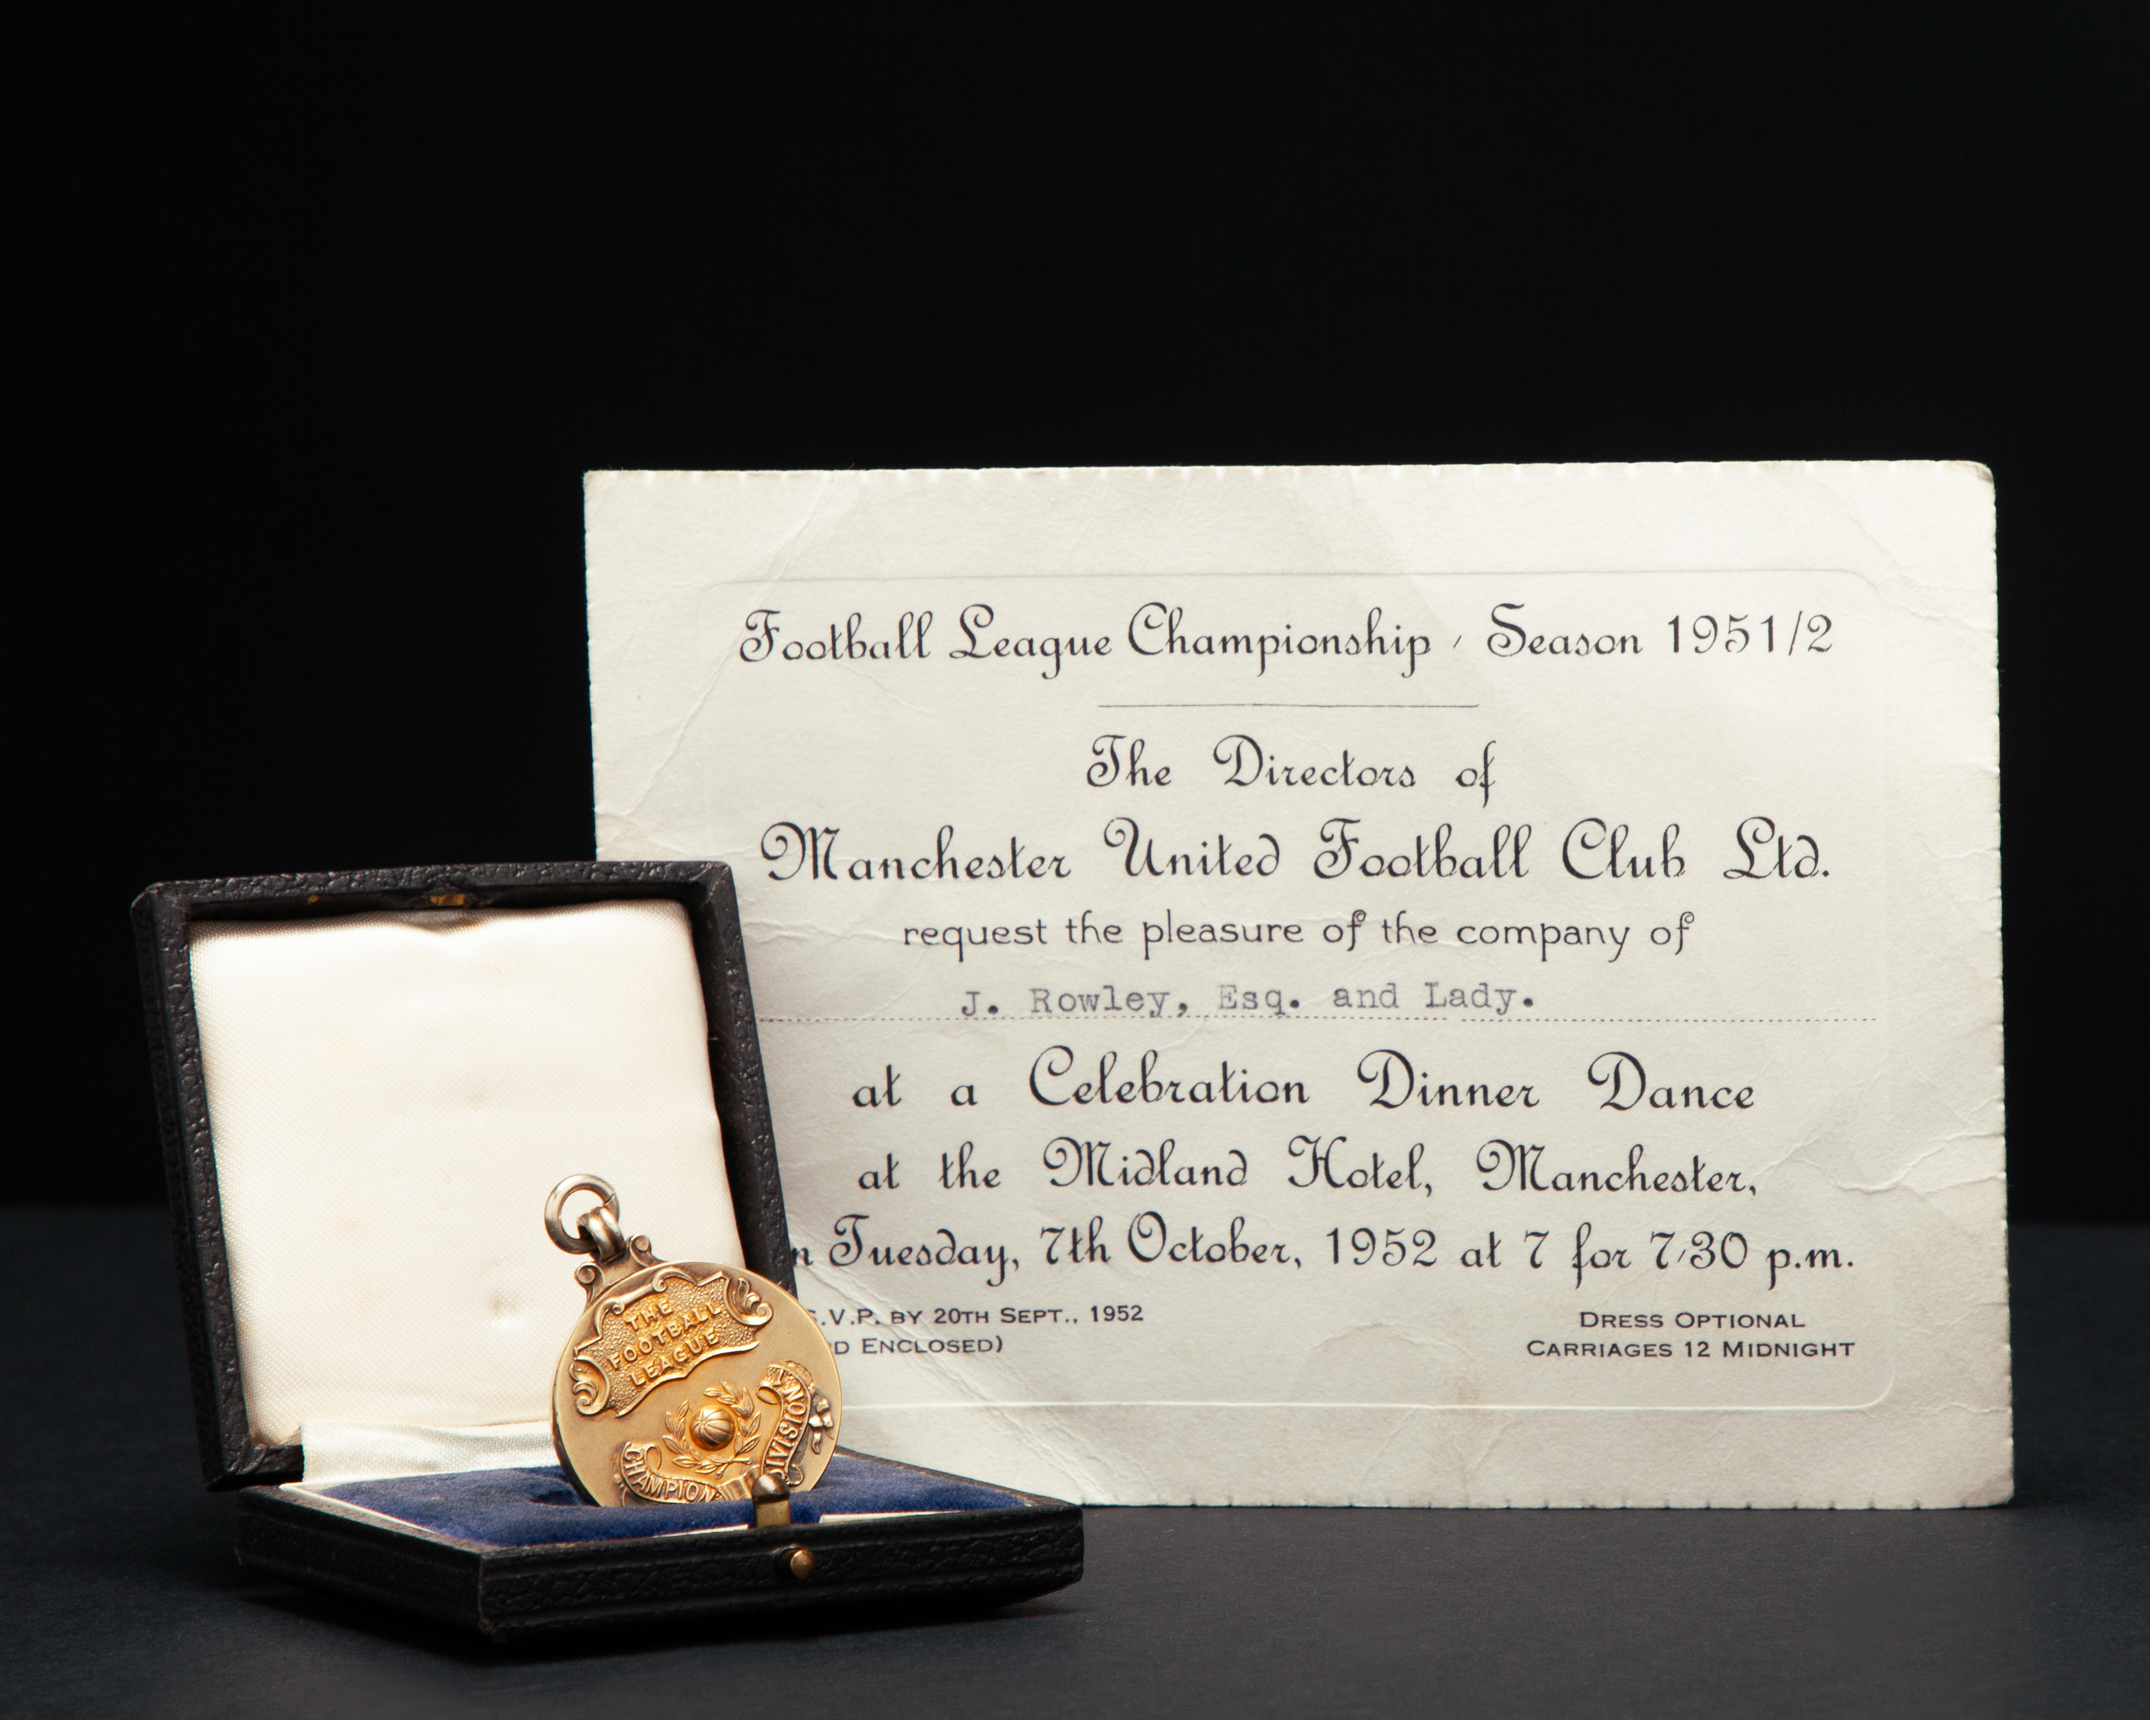 Football League Championship - Season 1951/2
The Directors of
Manchester United Football Club Ltd.
request the pleasure of the company of
J. Rowley, Esq. and Lady.
at a Celebration Dinner Dance
at the Midland Hotel, Manchester,
Tuesday, 7th October, 1952 at 7 for 7-30 p.m.
.V.P. BY 20TH SEPT., 1952
ENCLOSED)
DRESS OPTIONAL
CARRIAGES 12 MIDNIGHT
THE
FOOTBALL
LEAGUE
CHAMPION
DIVISION